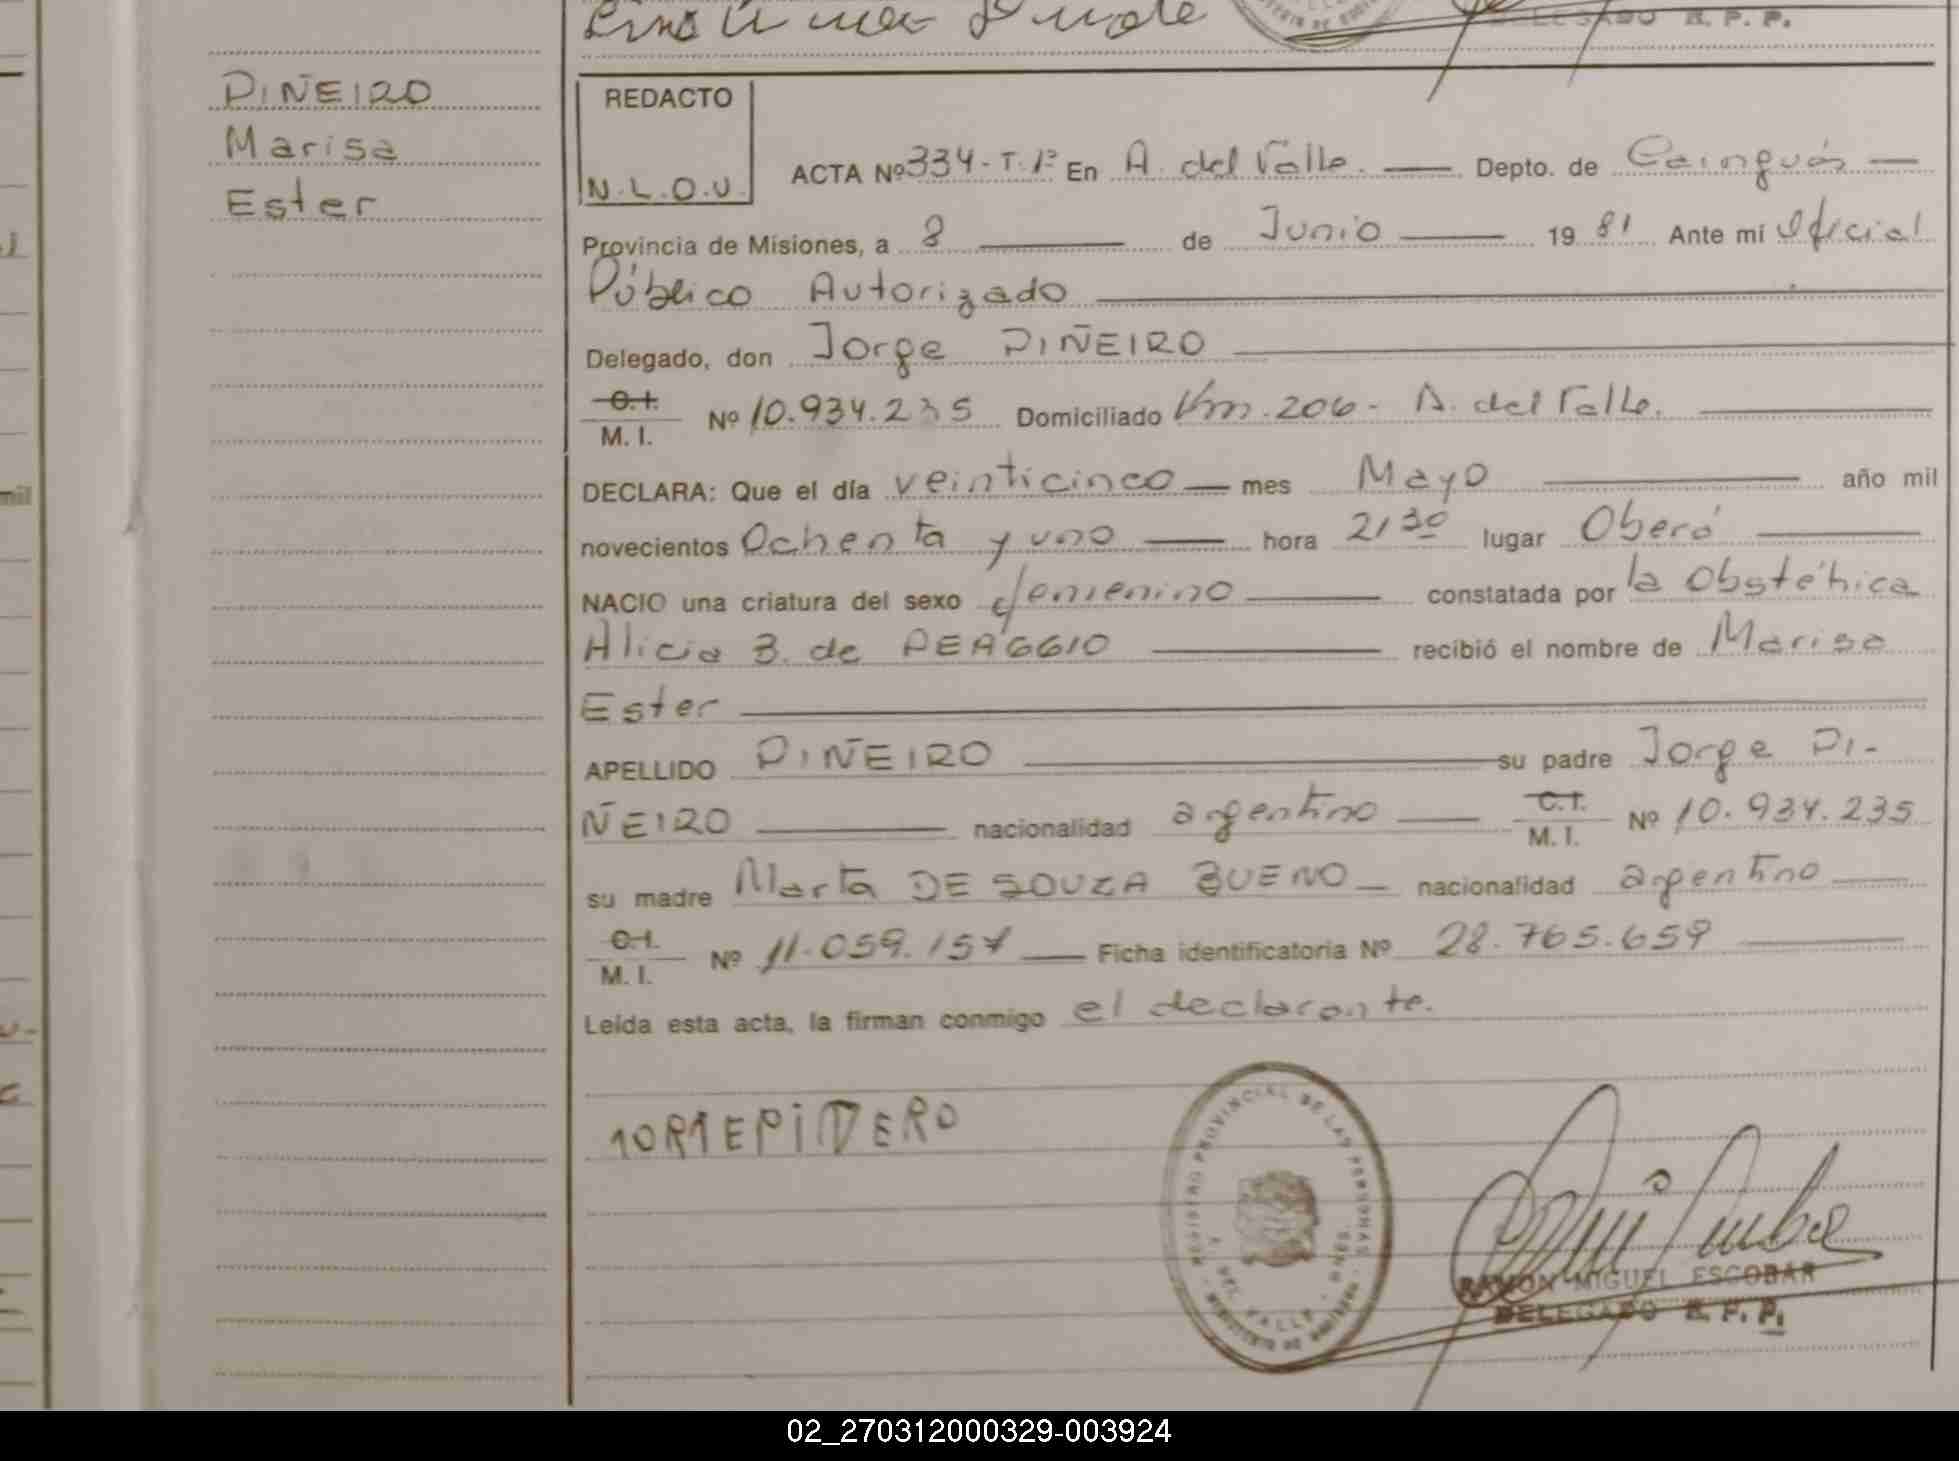 DELEGADO R. P. P.
PIÑEIRO
Marisa
Ester
REDACTO
N.L.O.V.
ACTA Nº 334-T.1º En A. del Valle. — Depto. de Cainguás —
Provincia de Misiones, a 8 — de Junio — 1981 Ante mi Oficial
Público Autorizado —
Delegado, don Jorge PIÑEIRO —
C.I.
M. I. Nº 10.934.235 Domiciliado Km. 206- A. del Valle. —
DECLARA: Que el día veinticinco — mes Mayo — año mil
novecientos Ochenta y uno — hora 21 30 lugar Oberá —
NACIO una criatura del sexo femenino — constatada por la Obstétrica
Alicia B. de PEAGGIO — recibió el nombre de Marisa
Ester —
APELLIDO PIÑEIRO — su padre Jorge PI-
ÑEIRO — nacionalidad argentino — C.I. M. I. Nº 10.934.235
su madre Marta DE SOUZA BUENO — nacionalidad argentino —
C.I.
M. I. Nº 11.059.157 — Ficha identificatoria Nº 28.765.659 —
Leída esta acta, la firman conmigo el declarante.
REGISTRO PROVINCIAL DE LAS PERSONAS
A. DEL VALLE - MNES.
MINISTERIO DE GOBIERNO
RAMON MIGUEL ESCOBAR
DELEGADO R. P. P.
02_270312000329-003924